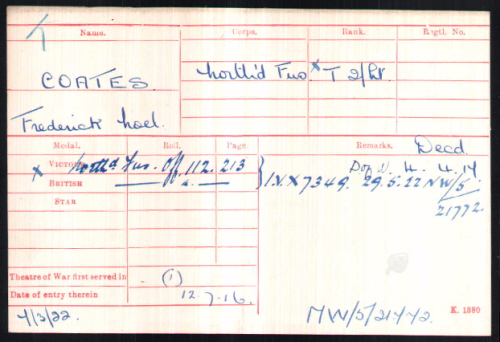 Name. Corps. Rank. Regtl. No.
COATES. North'd Fus. x T 2/Lt.
Frederick Noel.
Medal. Roll. Page. Remarks. Decd
x VICTORY North'd Fus. Off. 112. 213 4. 4. 17
BRITISH — " — I.V.X 7349. 29.5.22 NW/5/
STAR 21772.
Theatre of War first served in (1)
Date of entry therein 12.7.16.
4/3/22. NW/5/21772. K. 1380